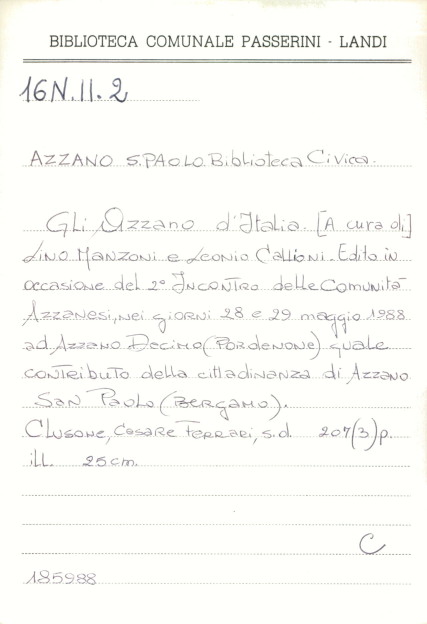 BIBLIOTECA COMUNALE PASSERINI - LANDI
16N.II.2
AZZANO S.PAOLO. Biblioteca Civica.
Gli Azzano d'Italia. [A cura di]
Lino Manzoni e Leonio Callioni. Edito in
occasione del 2° Incontro delle Comunità
Azzanesi, nei giorni 28 e 29 maggio 1988
ad Azzano Decimo (Pordenone) quale
contributo della cittadinanza di Azzano
San Paolo (Bergamo).
Clusone, Cesare Ferrari, s.d. 207(3)p.
ill. 25 cm.
C
185988